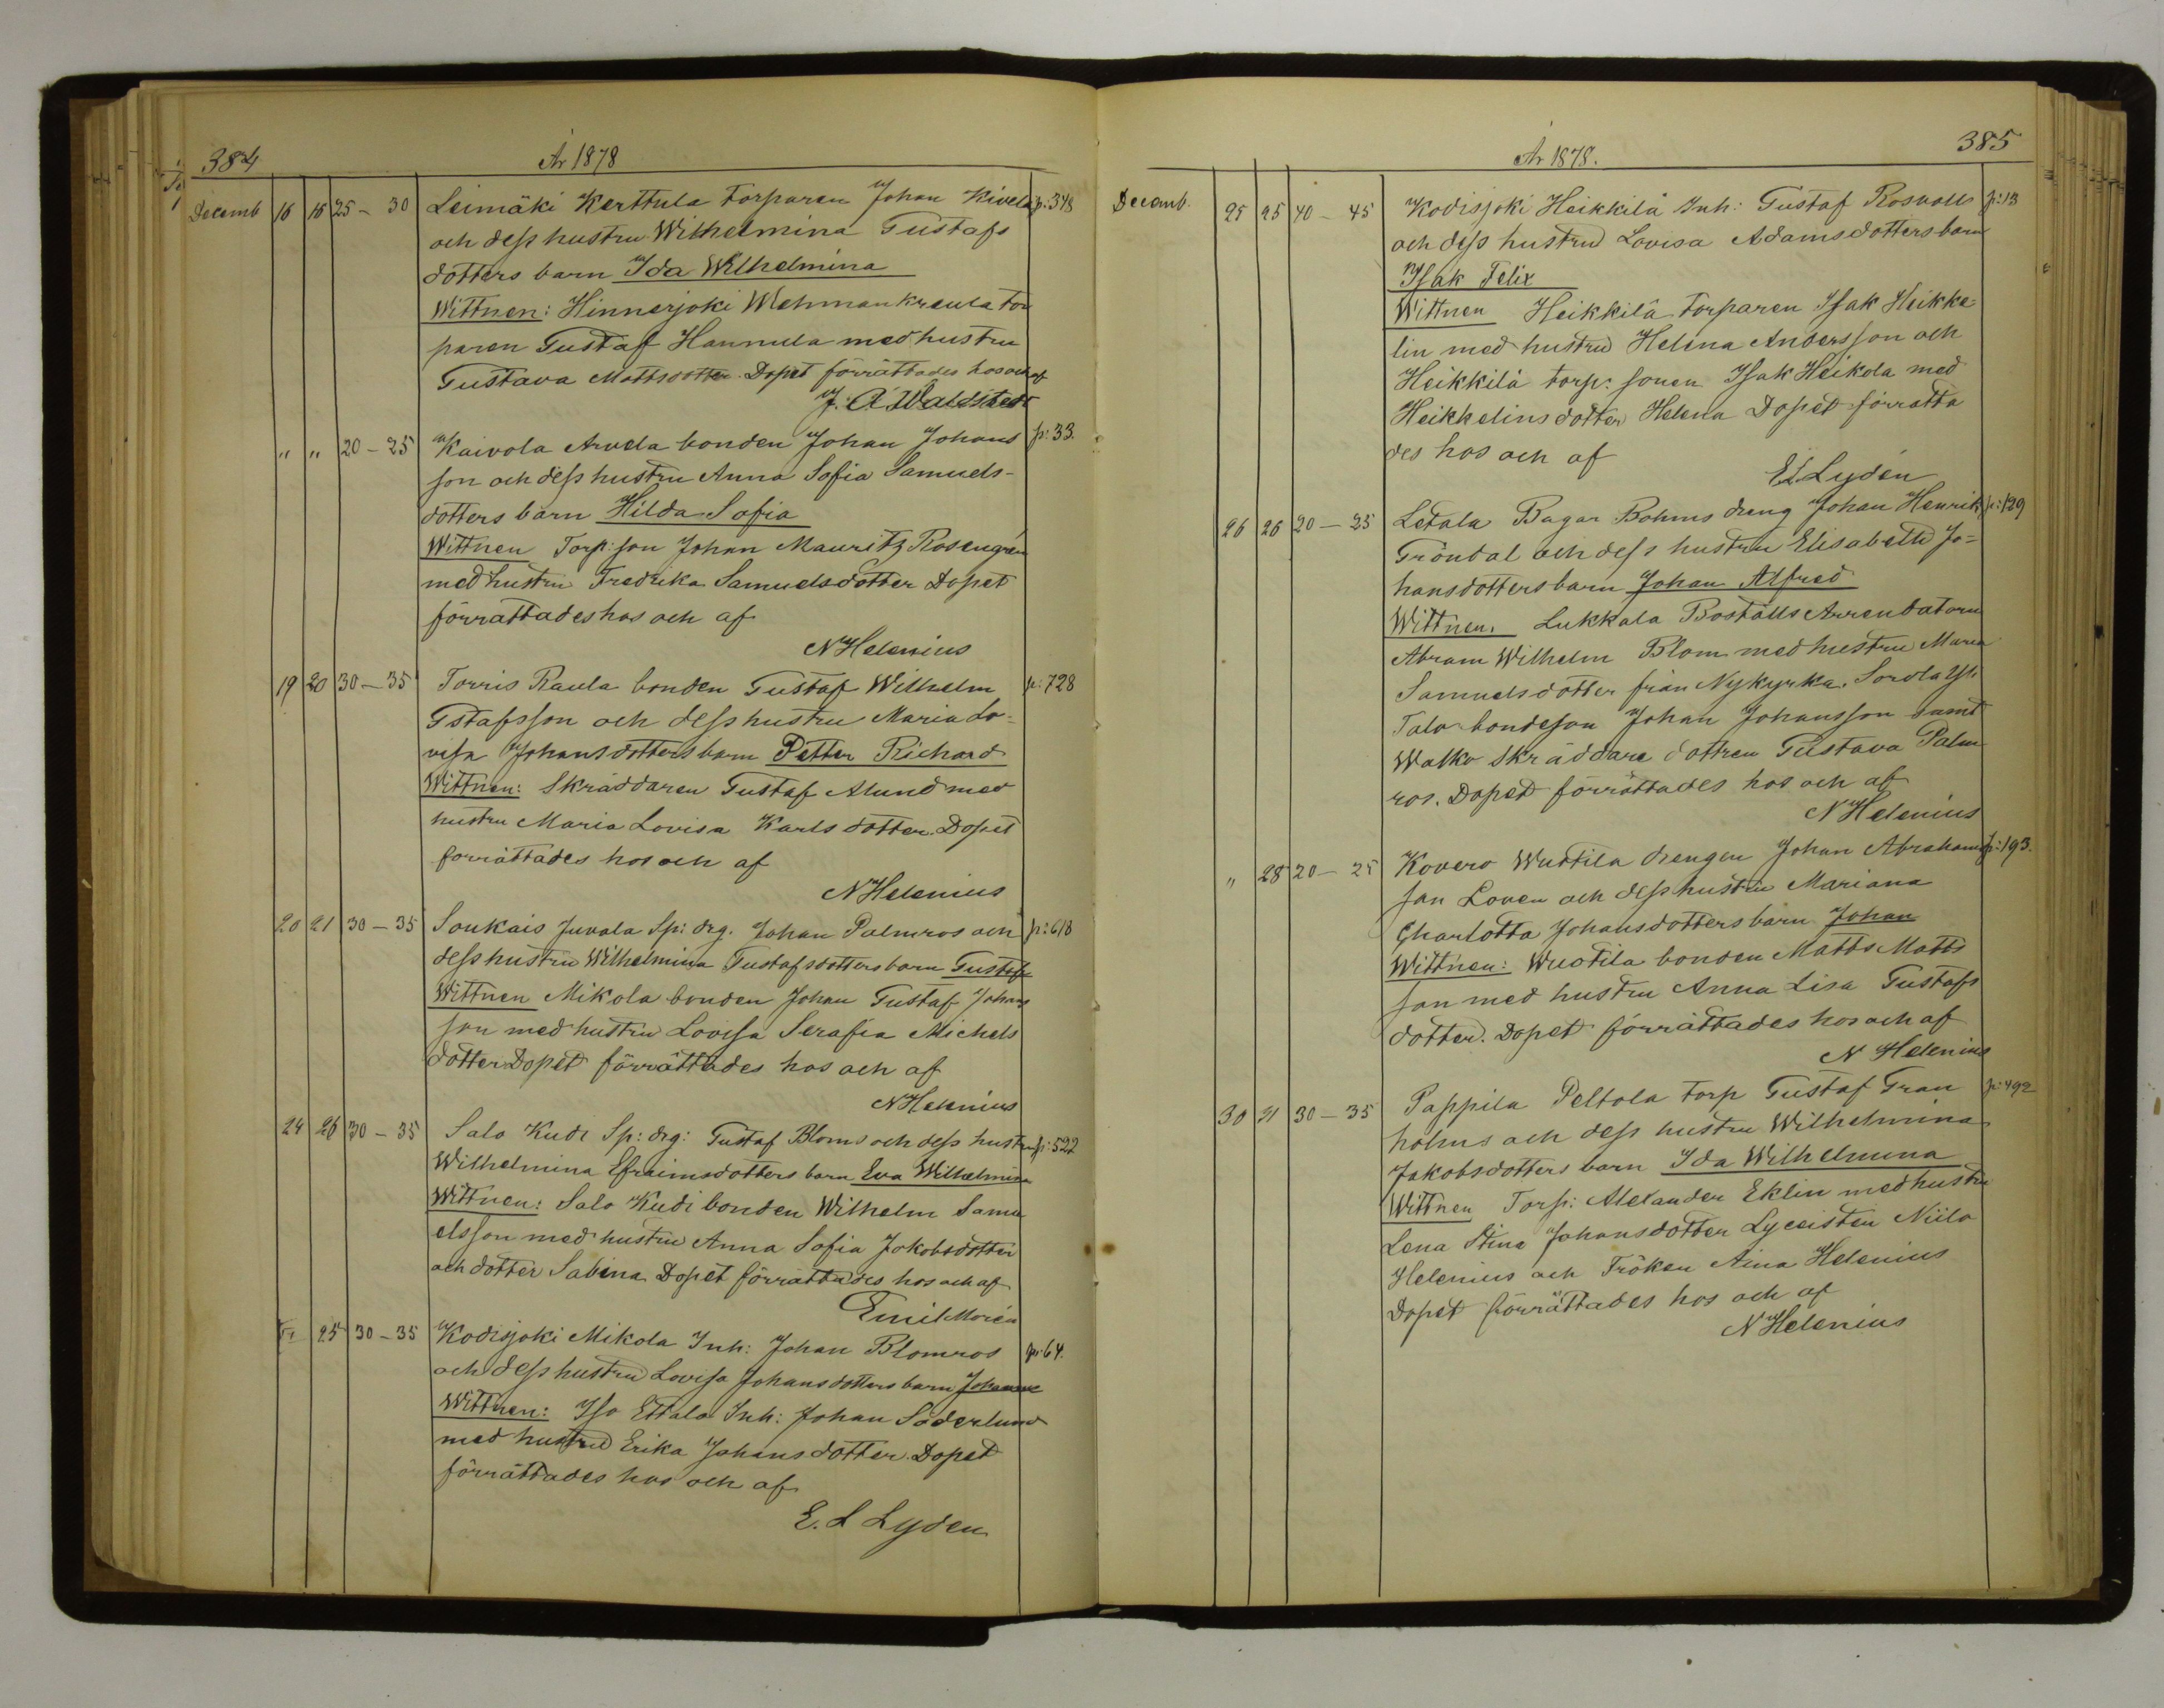 384
År 1878
Decemb 16 16 25 - 30 Leimäki Kerttula torparen Johan Kivelä p: 348
och dess hustru Wilhelmina Gustafs
dotters barn Ida Wilhelmina
Wittnen: Hinnerjoki Wehmankreula tor
paren Gustaf Hannula med hustru
Gustava Mattsdotter. Dopet förrättades hos och af
J. A. Waldstedt
" " 20 - 25 Kaivola Arvela bonden Johan Johans p: 33.
son och dess hustru Anna Sofia Samuels-
dotters barn Hilda Sofia
Wittnen Torp: son Johan Mauritz Rosengrén
med hustru Fredrika Samuelsdotter Dopet
förrättades hos och af
N Helenius
19 20 30 - 35 Torris Raula bonden Gustaf Wilhelm p: 728
Gstafsson och dess hustru Maria Lo-
visa Johansdotters barn Petter Richard
Wittnen: Skräddaren Gustaf Alund med
hustru Maria Lovisa Karlsdotter. Dopet
förrättades hos och af
N Helenius
20 21 30 - 35 Soukais Juvala Sp: drg. Johan Palmros och p: 618
dess hustru Wilhelmina Gustafsdotters barn Gustaf
Wittnen Mikola bonden Johan Gustaf Johans
son med hustru Lovisa Serafia Michels
dotter Dopet förrättades hos och af
N Helenius
24 26 30 - 35 Salo Kudi Sp: drg: Gustaf Bloms och dess hustru p: 522
Wilhelmina Efraimsdotters barn Eva Wilhelmina
Wittnen: Salo Kudi bonden Wilhelm Samu
elsson med hustru Anna Sofia Jakobsdotter
och dotter Sabina Dopet förrättades hos och af
Emil Morén
25 30 - 35 Kodisjoki Mikola Inh: Johan Blomros p: 64.
och dess hustru Lovisa Johansdotters barn
Wittnen: Iso Ettala Inh: Johan Söderlund
med hustru Erika Johansdotter. Dopet
förrättades hos och af
E. L Lyden
385
År 1878.
Decemb. 25 25 40 - 45 Kodisjoki Heikkilä Inh: Gustaf Rosvalls p: 13
och dess hustru Lovisa Adamsdotters barn
Isak Felix
Wittnen Heikkilä torparen Isak Heikke-
lin med hustru Helena Andersson och
Heikkilä torp: sonen Isak Heikola med
Heikkelins dotter Helena Dopet förrätta
des hos och af
E L Lydén
26 26 20 - 25 Letala Bagar Bohms dreng Johan Henrik p: 129
Gröndal och dess hustru Elisabeth Jo-
hansdotters barn Johan Alfred
Wittnen. Lukkala Boställs Arrendatorn
Abram Wilhelm Blom med hustru Maria
Samuelsdotter från Nykyrka. Sorola Yli
Talo bondeson Johan Johansson samt
Walko skräddare dottren Gustava Palm
ros. Dopet förrättades hos och af
N Helenius
" 28 20 - 25 Kovero Wuotila drengen Johan Abrahams p: 193.
son Loven och dess hustru Mariana
Charlotta Johansdotters barn Johan
Wittnen: Wuotila bonden Matts Matts
son med hustru Anna Lisa Gustafs
dotter. Dopet förrättades hos och af
N Helenius
30 31 30 - 35 Pappila Peltola torp Gustaf Gran p: 492
holms och dess hustru Wilhelmina
Jakobsdotters barn Ida Wilhelmina
Wittnen Torp: Alexander Eklin med hustru
Lena Stina Johansdotter Lyceisten Niilo
Helenius och Fröken Aina Helenius
Dopet förrättades hos och af
N Helenius